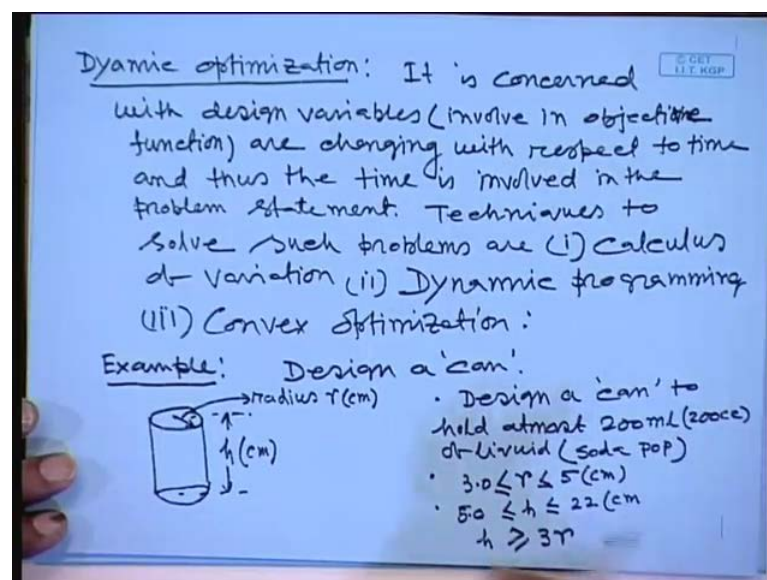 Dyamic optimization: It is concerned
with design variables (involve in objective
function) are changing with respect to time
and thus the time is involved in the
problem statement. Techniques to
solve such problems are (i) Calculus
of variation (ii) Dynamic programming
(iii) Convex optimization:
© CET
I.I.T. KGP
Example: Design a 'can'.
radius r(cm)
h(cm)
• Design a 'can' to
hold atmost 200ml (200cc)
of livuid (soda pop)
• 3.0 ≤ r ≤ 5 (cm)
• 5.0 ≤ h ≤ 22 (cm
h ≥ 3r